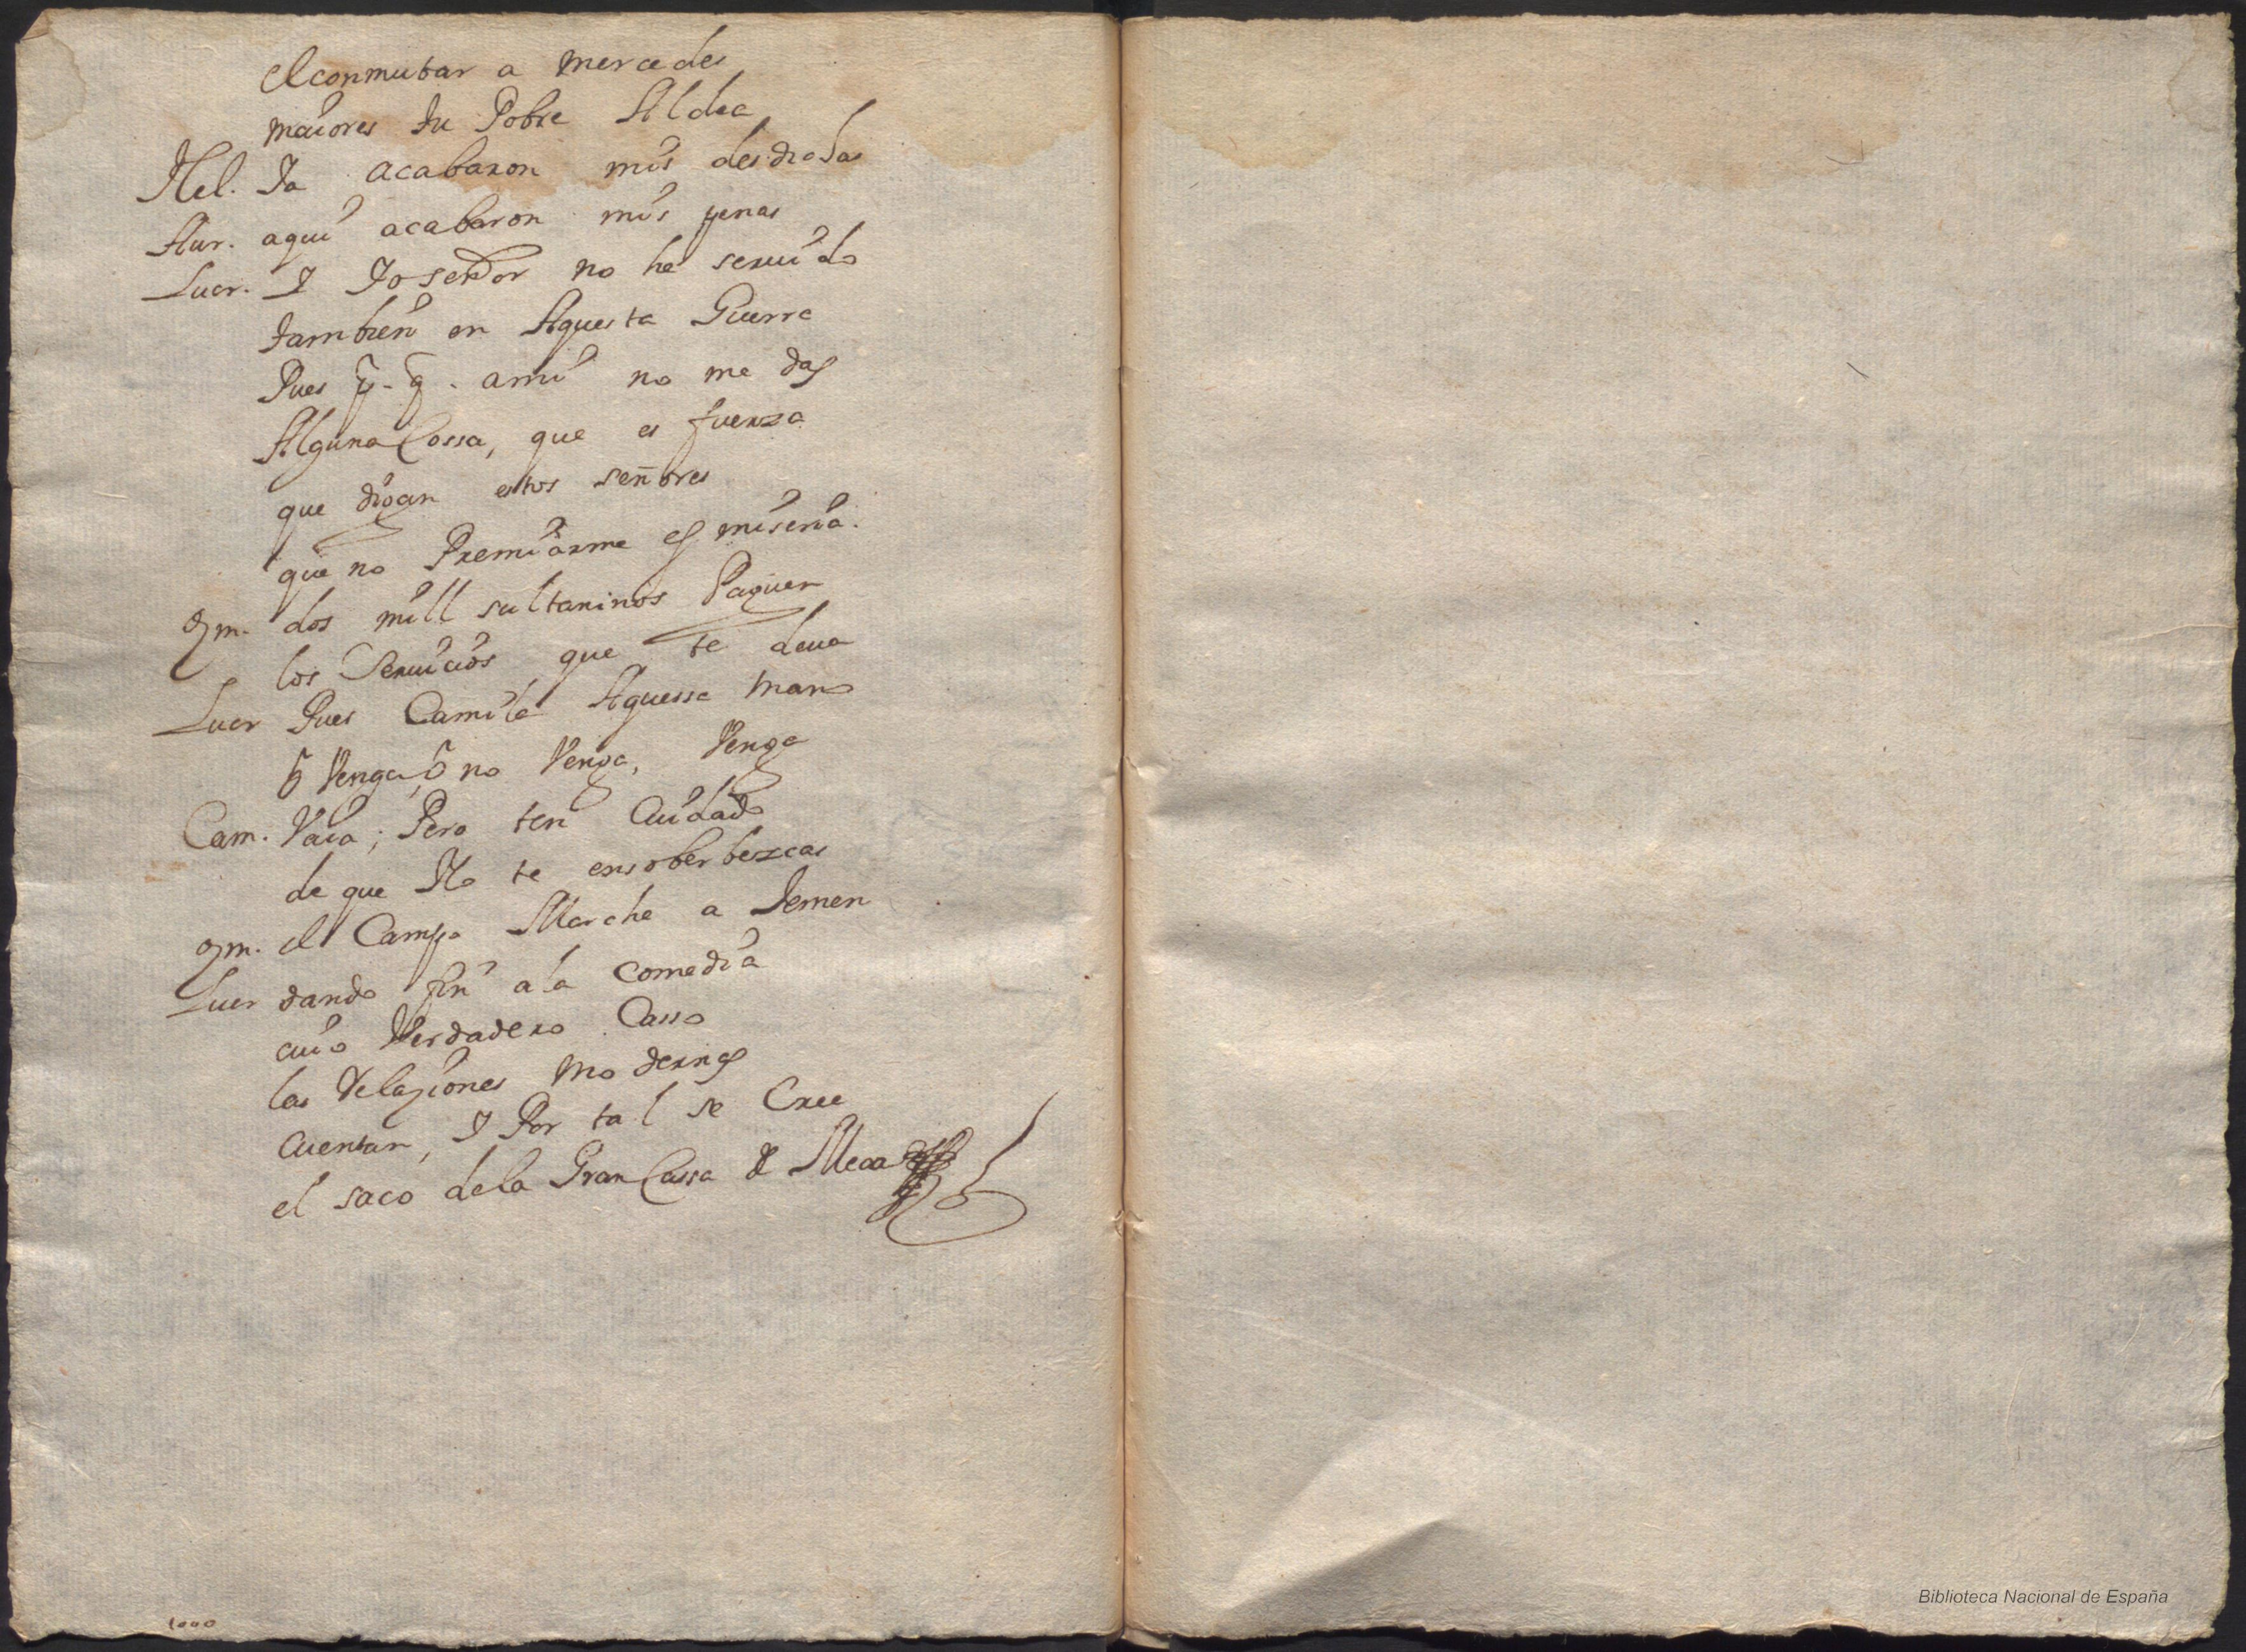 el conmutar a mercedes
maiores tu Pobre Aldea
Mel. Ia acabaron mis desdichas
Aur. aqui acabaron mis penas
Lucr. I Io señor no he seruido
tambien en Aquesta Guerra
Pues p. q. ami no me das
Alguna Cossa, que es fuerza
que digan estos señores
que no Premiarme es miseria.
Zm. dos mill sultaninos Paguen
los Seruicios que te deua
Lucr Pues Camila Aquessa mano
ó Venga, ó no Venga, Venga
Cam. Vaia; Pero ten Cuidado
de que No te ensoberbezcas
Zm. el Campo Marche a Iemen
Lucr dando fin a la comedia
cuio Verdadero Casso
las Relaziones modernas
Cuentan, I Por tal se Cree
el saco de la Gran Cassa de Meca
Biblioteca Nacional de España